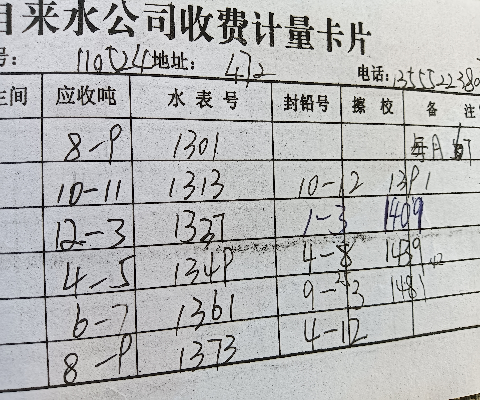 自来水公司收费计量卡片
号: 110524 地址: 472 电话: 135552238
生间 应收吨 水表号 封铅号 擦校 备注
8-9 1301 每月
10-11 1313 10-12 1391
12-3 1337 1-3 1409
4-5 1349 4-8 1439
6-7 1361 9-3 1481
8-9 1373 4-12